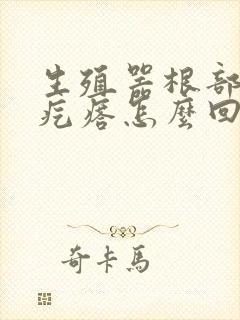 生殖器根部
疙瘩怎麼回
奇卡馬